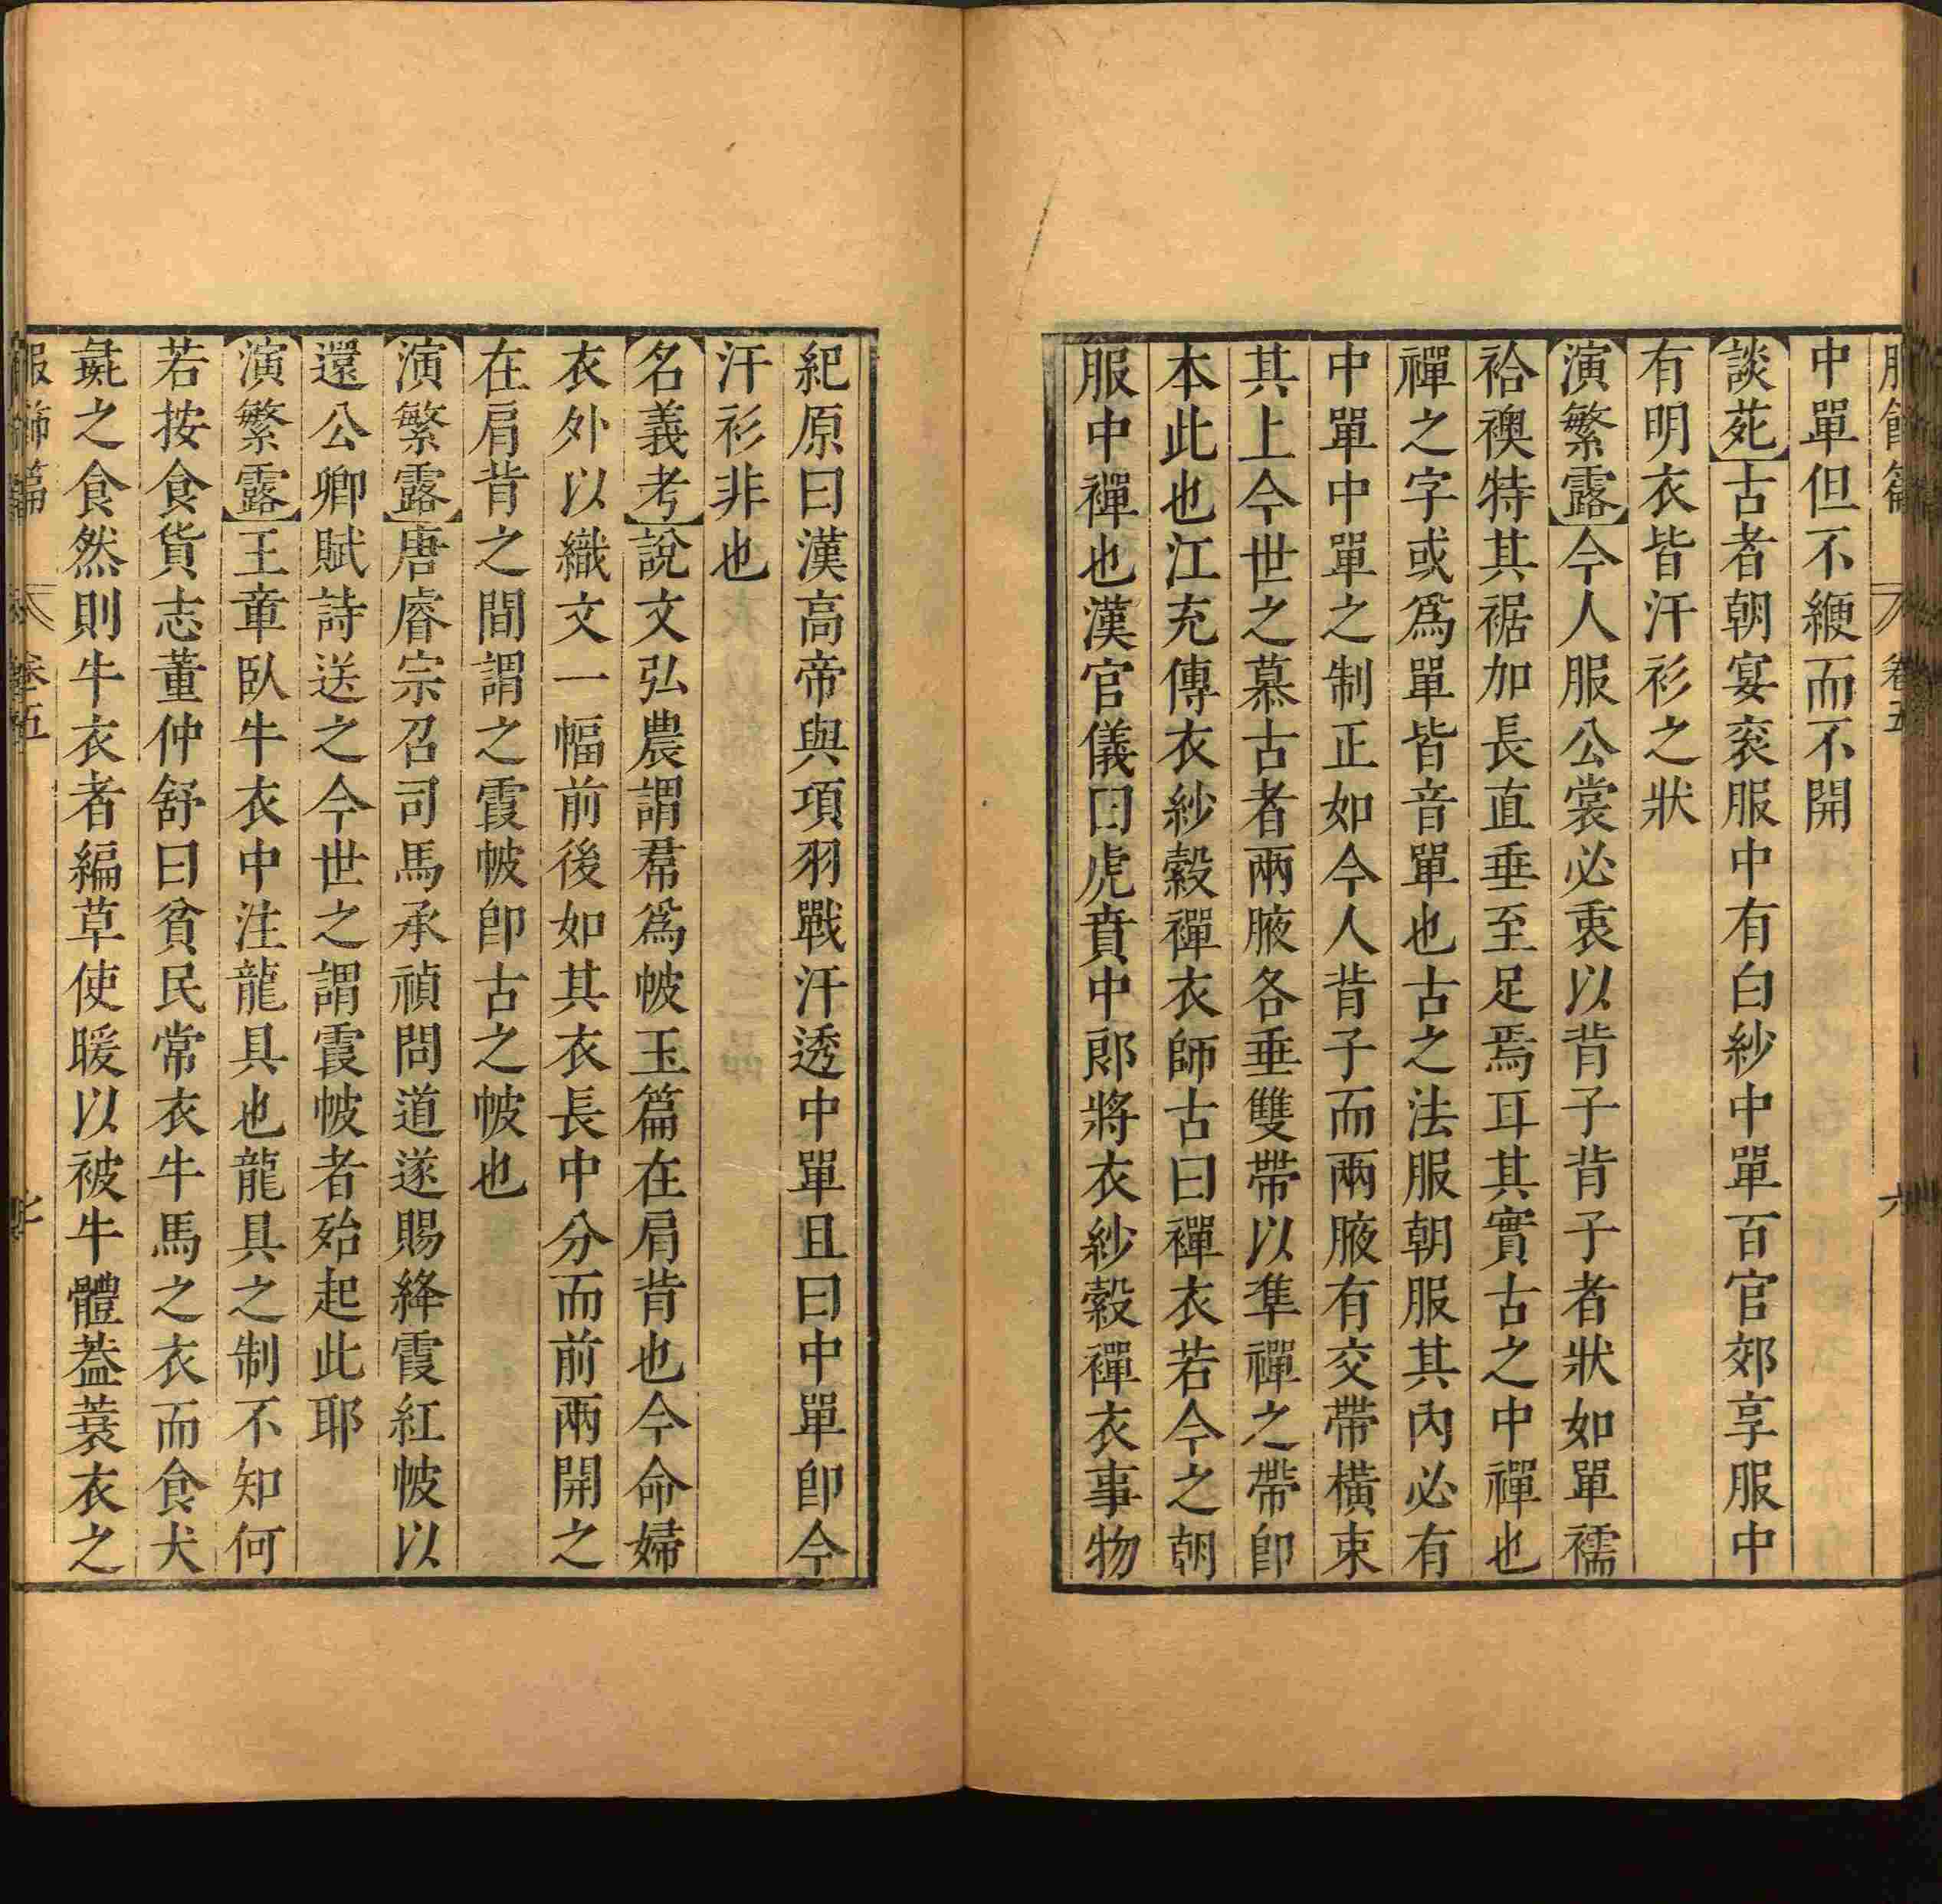 服飾篇 卷五 六
中單但不緶而不開
談苑古者朝宴衮服中有白紗中單百官郊享服中
有明衣皆汗衫之狀
演繁露今人服公裳必衷以背子背子者狀如單襦
袷襖特其裾加長直垂至足焉耳其實古之中禪也
禪之字或爲單皆音單也古之法服朝服其內必有
中單中單之制正如今人背子而兩腋有交帶橫束
其上今世之慕古者兩腋各垂雙帶以準禪之帶卽
本此也江充傳衣紗縠禪衣師古曰禪衣若今之朝
服中禪也漢官儀曰虎賁中郎將衣紗縠禪衣事物
紀原曰漢高帝與項羽戰汗透中單且曰中單卽今
汗衫非也
名義考說文弘農謂帬爲帔玉篇在肩背也今命婦
衣外以織文一幅前後如其衣長中分而前兩開之
在肩背之間謂之霞帔卽古之帔也
演繁露唐睿宗召司馬承禎問道遂賜絳霞紅帔以
還公卿賦詩送之今世之謂霞帔者殆起此耶
演繁露王章臥牛衣中注龍具也龍具之制不知何
若按食貨志董仲舒曰貧民常衣牛馬之衣而食犬
彘之食然則牛衣者編草使暖以被牛體蓋蓑衣之
服飾篇 卷五 七